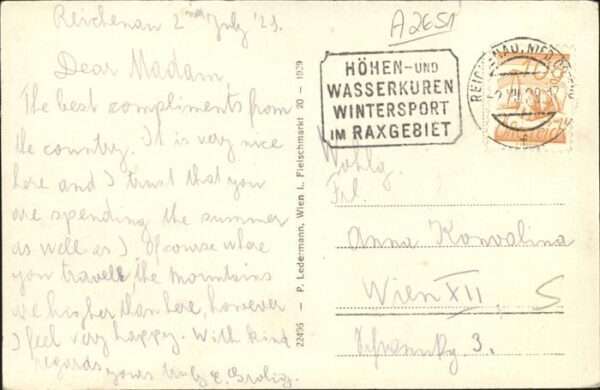 Reichenau 2nd July '29.
Dear Madam
The best compliments from
the country. It is very nice
here and I trust that you
are spending the summer
as well as I. Of course where
you travell, the mountains
are higher than here, however
I feel very happy. With kind
regards
yours truly E.
22495 — P. Ledermann, Wien I., Fleischmarkt 20 — 1929
A2ESI
HÖHEN- UND
WASSERKUREN
WINTERSPORT
IM RAXGEBIET
REICHENAU, NIED.
10
Frl.
Anna Konvalina
Wien XII
3.